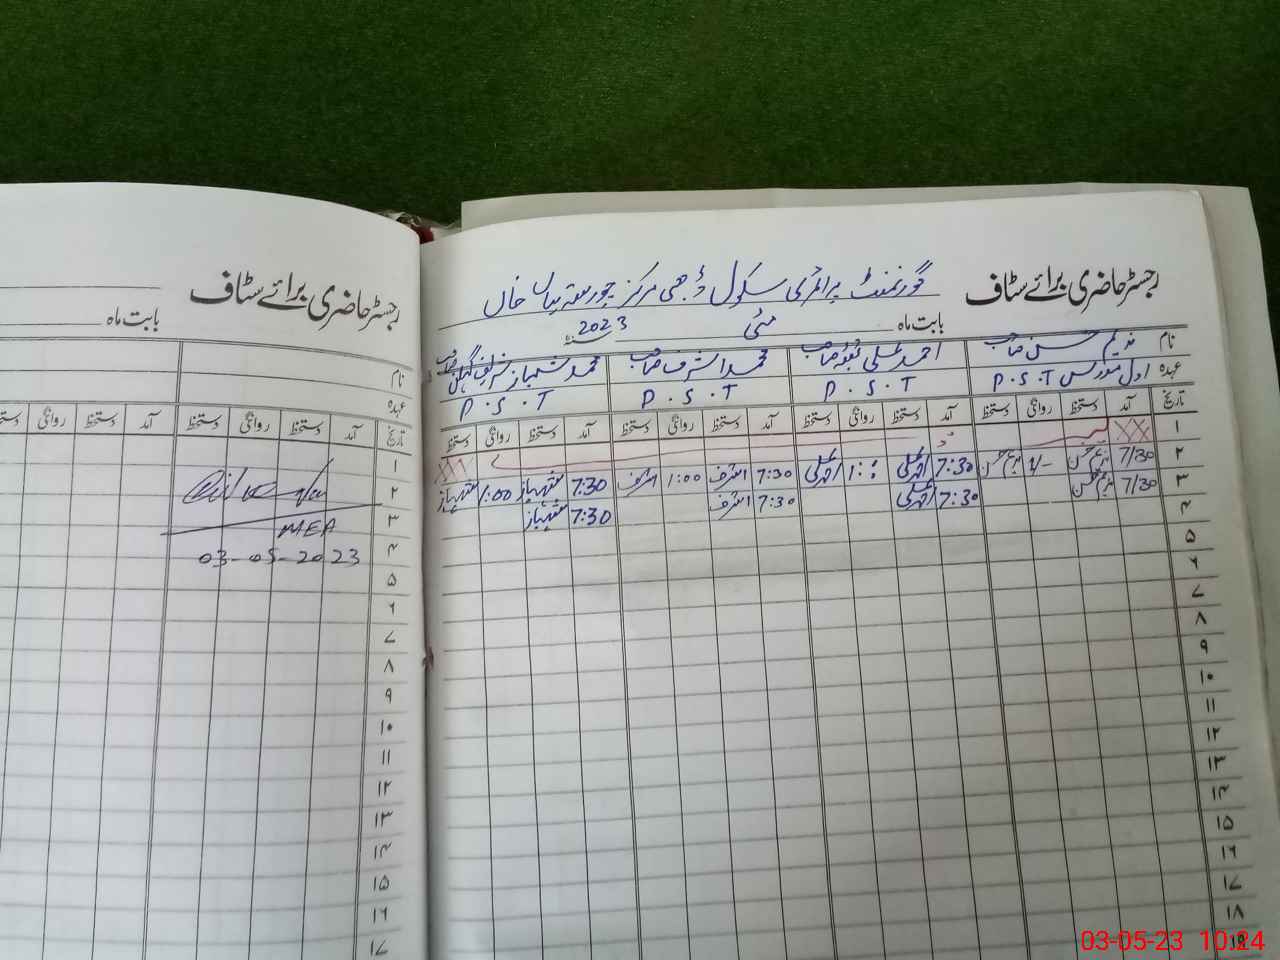 رجسٹر حاضری برائے سٹاف
گورنمنٹ پرائمری سکول مرکز خان
بابت ماہ مئی سنہ 2023
نام ندیم صاحب احمد علی صاحب محمد اشرف صاحب محمد شہباز
عہدہ P.S.T P.S.T P.S.T P.S.T
تاریخ آمد دستخط روانگی دستخط آمد دستخط روانگی دستخط آمد دستخط روانگی دستخط آمد دستخط روانگی دستخط
۱
۲ 7/30 1/- 7:30 احمد علی 1:00 احمد علی 7:30 اشرف 1:00 اشرف 7:30 شہباز 1:00 شہباز
۳ 7/30 7:30 احمد علی 7:30 اشرف 7:30 شہباز
۴
۵
۶
۷
۸
۹
۱۰
۱۱
۱۲
۱۳
۱۴
۱۵
۱۶
۱۷
۱۸
۱۹
رجسٹر حاضری برائے سٹاف
بابت ماہ
نام
عہدہ
تاریخ آمد دستخط روانگی دستخط آمد دستخط روانگی
۱
۲
۳ MEA
۴ 03-05-2023
۵
۶
۷
۸
۹
۱۰
۱۱
۱۲
۱۳
۱۴
۱۵
۱۶
۱۷
03-05-23 10:24